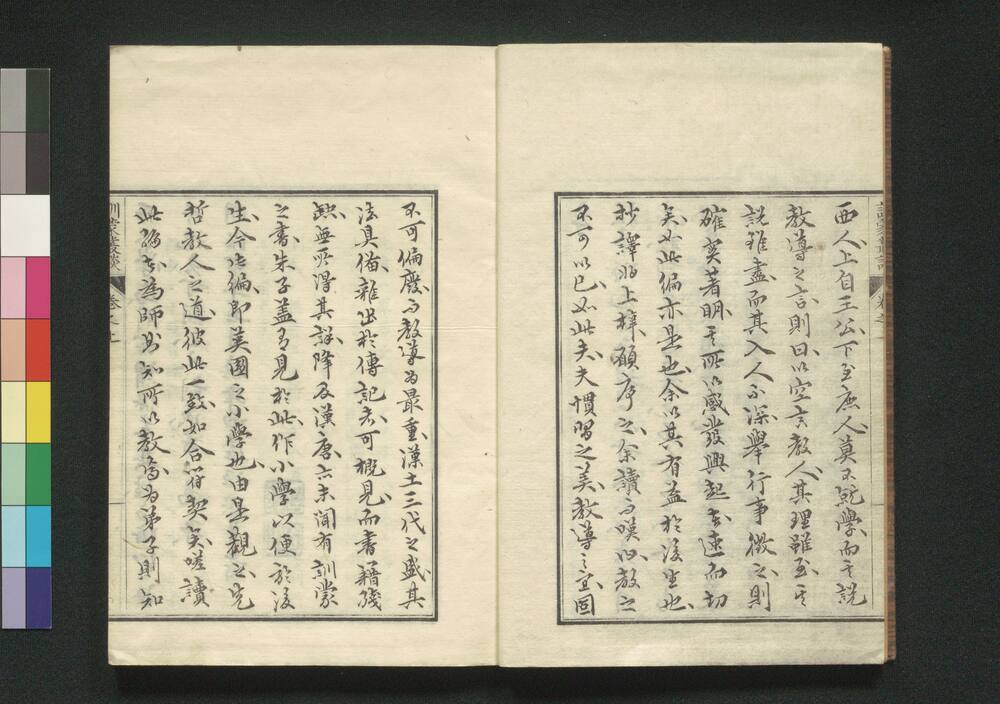 西人上自王公下至庶人莫不就學而其說
教導之言則曰以空言教人其理雖至其
說雖盡而其入人不深舉行事徵之則
確實著明其所以感發興起者速而切
矣如此編亦是也余以其有益於後生也
抄譯將上梓顧序之余讀而嘆以教之
不可以已如此夫夫慣習之美教導之宜固
不可偏廢而教導為最重漢土三代之盛其
法具備雜出於傳記者可概見而書籍殘
缺無所得其詳降及漢唐亦未聞有訓蒙
之書朱子蓋有見於此作小學以便於後
生今此編即英國之小學也由是觀之先
哲教人之道彼此一致如合符契矣嗟讀
此編者為師則知所以教為弟子則知
訓蒙叢談 卷之上